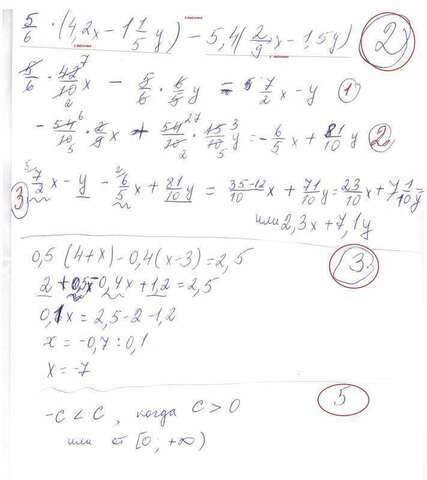 5/6 · (4,2x − 1 1/5 y) − 5,4(2/9 x − 1,5y) 2
5/6 · 42/10 x − 5/6 · 6/5 y = 7/2 x − y 1
− 54/10 · 2/9 x + 54/10 · 15/10 y = − 6/5 x + 81/10 y 2
3 7/2 x − y − 6/5 x + 81/10 y = 35−12/10 x + 71/10 y = 23/10 x + 7 1/10 y
или 2,3x + 7,1y
0,5 (4+x) − 0,4(x−3) = 2,5 3
2 + 0,5x − 0,4x + 1,2 = 2,5
0,1x = 2,5 − 2 − 1,2
x = −0,7 : 0,1
x = −7
−c < c , когда c > 0 5
или от [0; +∞)